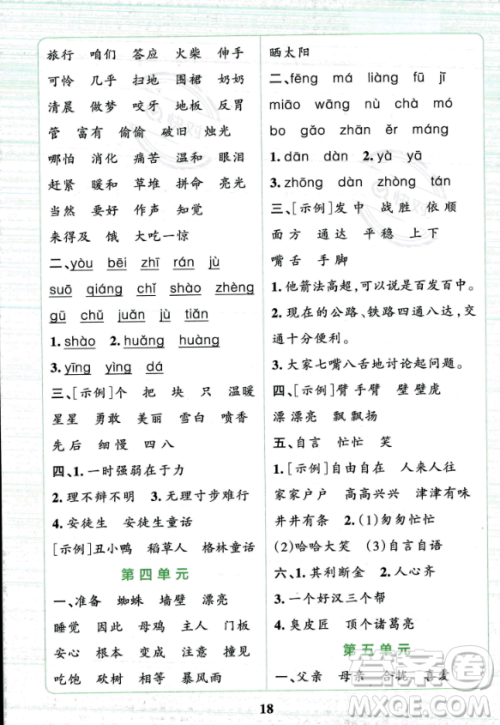 旅行 咱们 答应 火柴 伸手
可怜 几乎 扫地 围裙 奶奶
清晨 做梦 咬牙 地板 反胃
管 富有 偷偷 破旧 烛光
哪怕 消化 痛苦 温和 眼泪
赶紧 暖和 草堆 拼命 亮光
当然 要好 作声 知觉
来得及 饿 大吃一惊
二、yòu bēi zhī rán jù
suō qiáng chī shāo zhèng
gū chú fú chì dǎo
1.shào 2.huǎng huàng
3.yīng yìng dá
三、[示例]个 把 块 只 温暖
星星 勇敢 美丽 雪白 喷香
先后 细慢 四八
四、1.一时强弱在于力
2.理不辩不明 3.无理寸步难行
4.安徒生 安徒生童话
[示例]丑小鸭 稻草人 格林童话
第四单元
一、准备 蜘蛛 墙壁 漂亮
睡觉 因此 母鸡 主人 门板
安心 根本 立刻 注意 撞见
吃饱 饱饭 暴风雨
晒太阳
二、fēng má liàng fū jī
miāo wāng nù chà kào
bo gǎo zhān ěr máng
1.dān dàn 2.yà yà
3.zhōng dàn zhòng tán
三、[示例]发中 战胜 依顺
面方 通达 平稳 上下
嘴舌 手脚
1.他箭法高超,可以说是百发百中。
2.现在的公路、铁路四通八达,十
分便利。
3.大家七嘴八舌地讨论起问题。
四、[示例]臂 手臂 壁 壁虎
漂 漂亮 飘 飘扬
五、自言 忙忙 笑
1.[示例]自由自在 人来人往
家家户户 高高兴兴 津津有味
井井有条 (1)匆匆忙忙
(2)哈哈大笑 (3)自言自语
六、1.其利断金 2.人心齐
3.一个好汉三个帮
4.臭皮匠 顶个诸葛亮
第五单元
一、父亲 母亲 合拢 喜爱
18
答案圈
MXQE.COM